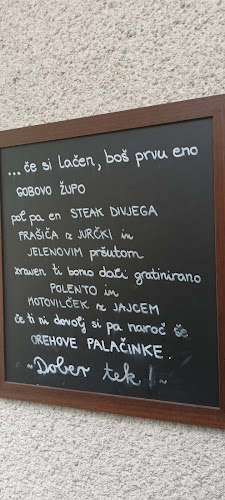 ...če si lačen, boš prvu eno
GOBOVO ŽUPO
pol pa en STEAK DIVJEGA
PRAŠIČA z JURČKI in
JELENOVIM pršutom
zraven ti bomo dali gratinirano
POLENTO in
MOTOVILČEK z JAJCEM
če ti ni dovolj si pa naroč še
OREHOVE PALAČINKE.
~Dober tek!~